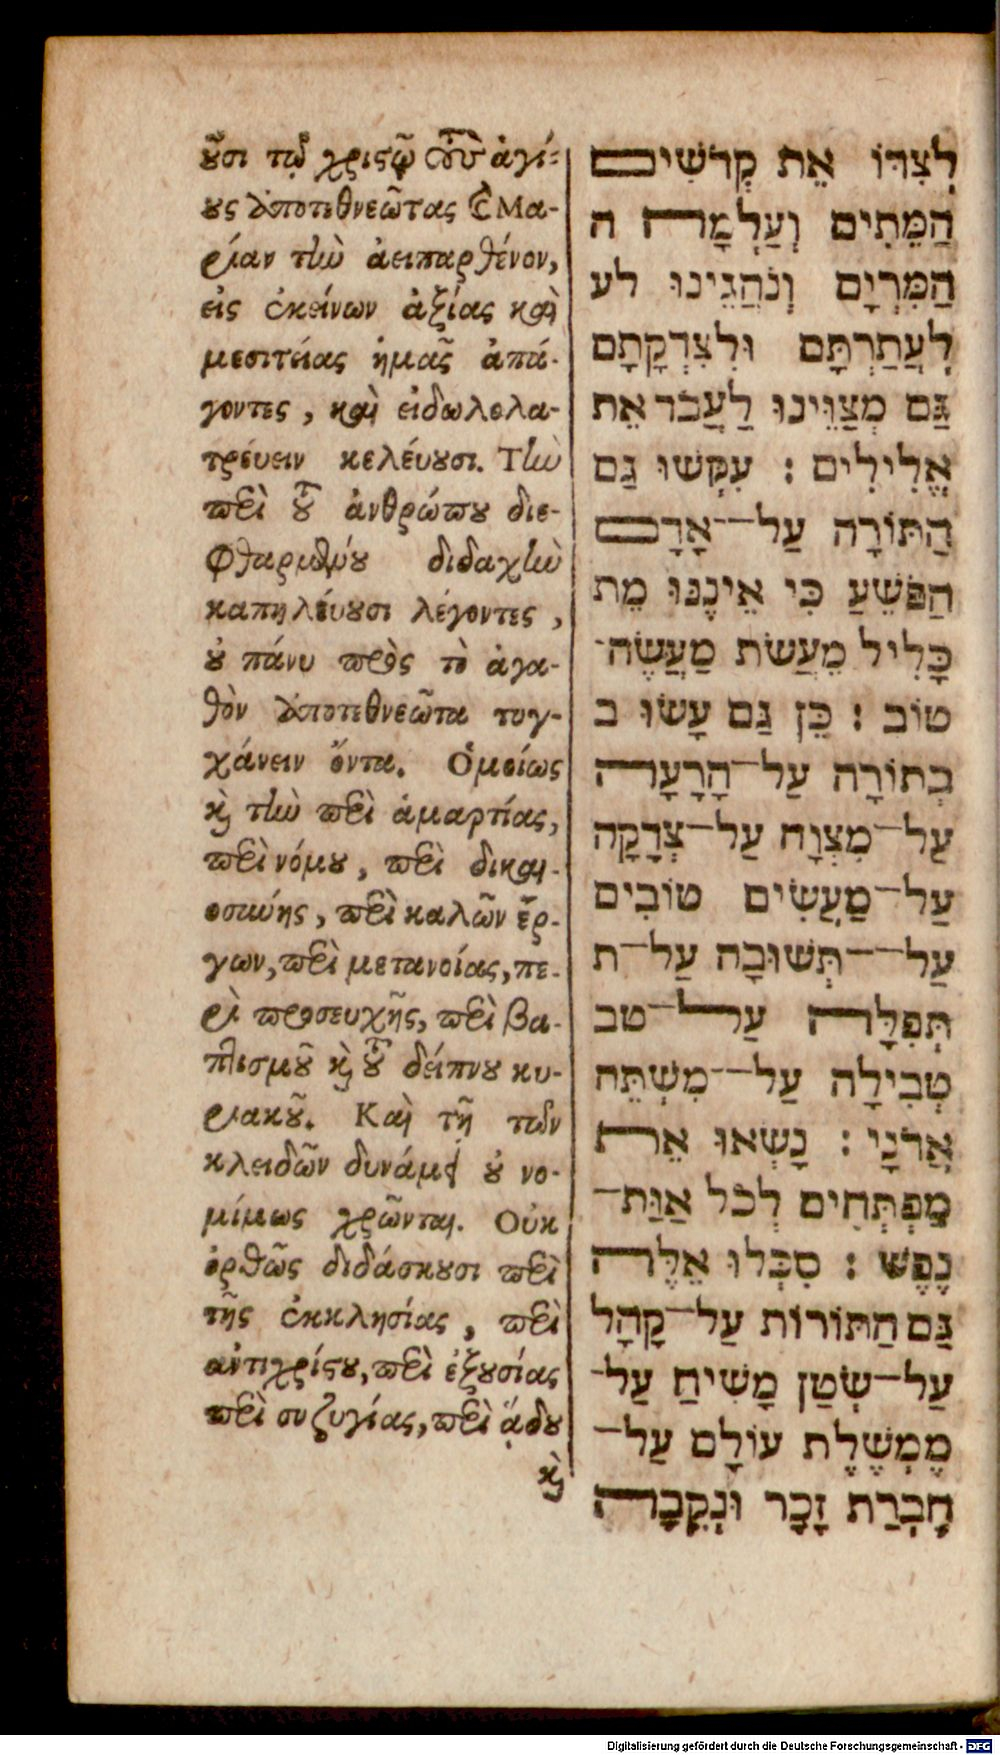 ȣ͂σι τῷ χριστῷ τοὺς ἁγί-
ȣς ἀποτεθνεῶτας ἐ Μα-
ρίαν τὴν ἀειπαρθένον,
εἰς ἐκείνων ἀξίας καὶ
μεσιτείας ἡμᾶς ἀπά-
γοντες, καὶ εἰδωλολα-
τρέυειν κελέυȣσι. Τὴν
περὶ τȣ͂ ἀνθρώπȣ διε-
φθαρμένȣ διδαχὴν
καπηλέυȣσι λέγοντες,
ȣ πάνυ πρὸς τὸ ἀγα-
θὸν ἀποτεθνεῶτα τυγ-
χάνειν ὄντα. Ὁμοίως
ϗ τὴν περὶ ἁμαρτίας,
περὶ νόμȣ, περὶ δικαι-
οσύνης, περὶ καλῶν ἔρ-
γων, περὶ μετανοίας, πε-
ρὶ προσευχῆς, περὶ βα-
πτισμȣ͂ ϗ τȣ͂ δείπνȣ κυ-
ριακȣ͂. Καὶ τῇ τῶν
κλειδῶν δυνάμει ȣ νο-
μίμως χρῶνται. Οὐκ
ὀρθῶς διδάσκȣσι περὶ
τῆς ἐκκλησίας, περὶ
ἀντιχρίστȣ, περὶ ἐξȣσίας
περὶ συζυγίας, περὶ ᾅδȣ
ϗ
לְצִדּוֹ אֵת קְדֹשִׁים
הַמֵּתִים וְעַלְמָה ה
הַמִּרְיָם וְנֹהֲגֵינוּ לע
לְעֲתַרְתָּם וּלְצִדְקָתָם
גַּם מְצַוֵּינוּ לַעֲבֹר אֵת
אֱלִילִים : עִקְּשׁוּ גַם
הַתּוֹרָה עַל־אָדָם
הַפֹּשֵׁעַ כִּי אֵינֶנּוּ מֵת
כָּלִיל מֵעֲשֹׂת מַעֲשֶׂה־
טוֹב : כֵּן גַּם עָשׂוּ ב
בְתוֹרָה עַל־הָרָעָה
עַל־מִצְוָה עַל־צְדָקָה
עַל־מַעֲשִׂים טוֹבִים
עַל־תְּשׁוּבָה עַל־ת
תְּפִלָּה עַל־טב
טְבִילָה עַל־מִשְׁתֵּה
אֲדֹנָי : נָשְׂאוּ אֵת
מַפְתְּחִים לְכֹל אַוַּת־
נֶפֶשׁ : סִכְּלוּ אֵלֶּה
גַּם הַתּוֹרוֹת עַל־קָהָל
עַל־שְׂטַן מָשִׁיחַ עַל־
מֶמְשֶׁלֶת עוֹלָם עַל־
חֶבְרַת זָכָר וּנְקֵבָה
Digitalisierung gefördert durch die Deutsche Forschungsgemeinschaft - DFG